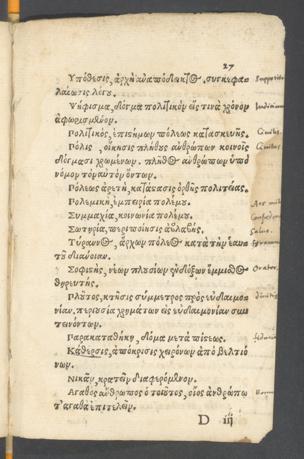 27
Ὑπόθεσις, ἀρχὴ ἀναπόδεικτος, συγκεφα
λαίωσις λόγου.
Ψήφισμα, δόγμα πολιτικὸν εἴς τινα χρόνον
ἀφωρισμένον.
Πολιτικὸς, ἐπιστήμων πόλεως κατασκευῆς.
Πόλις, οἴκησις πλήθους ἀνθρώπων κοινοῖς
δόγμασι χρωμένων. πλῆθος ἀνθρώπων ὑπὸ
νόμον τὸν αὐτὸν ὄντων.
Πόλεως ἀρετὴ, κατάστασις ὀρθῆς πολιτείας.
Πολεμικὴ, ἐμπειρία πολέμου.
Συμμαχία, κοινωνία πολέμου.
Σωτηρία, περιποίησις ἀβλαβής.
Τύραννος, ἄρχων πόλεως κατὰ τὴν ἑαυ
τοῦ διάνοιαν.
Σοφιστὴς, νέων πλουσίων ἐνδόξων ἔμμισθος
θηρευτής.
Πλοῦτος, κτῆσις σύμμετρος πρὸς εὐδαιμο
νίαν. περιουσία χρημάτων εἰς εὐδαιμονίαν συν
τεινόντων.
Παρακαταθήκη, δόμα μετὰ πίστεως.
Κάθαρσις, ἀπόκρισις χειρόνων ἀπὸ βελτιό
νων.
Νικᾶν, κρατεῖν διαφερόμενον.
Ἀγαθὸς ἄνθρωπος ὁ τοιοῦτος, οἷος ἀνθρώπῳ
τἀγαθὰ ἐπιτελεῖν.
D iij